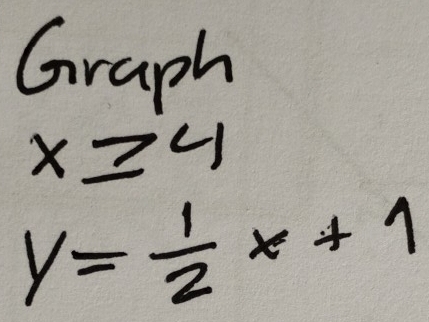 Graph
x ≥ 4
y = 1/2 x + 1